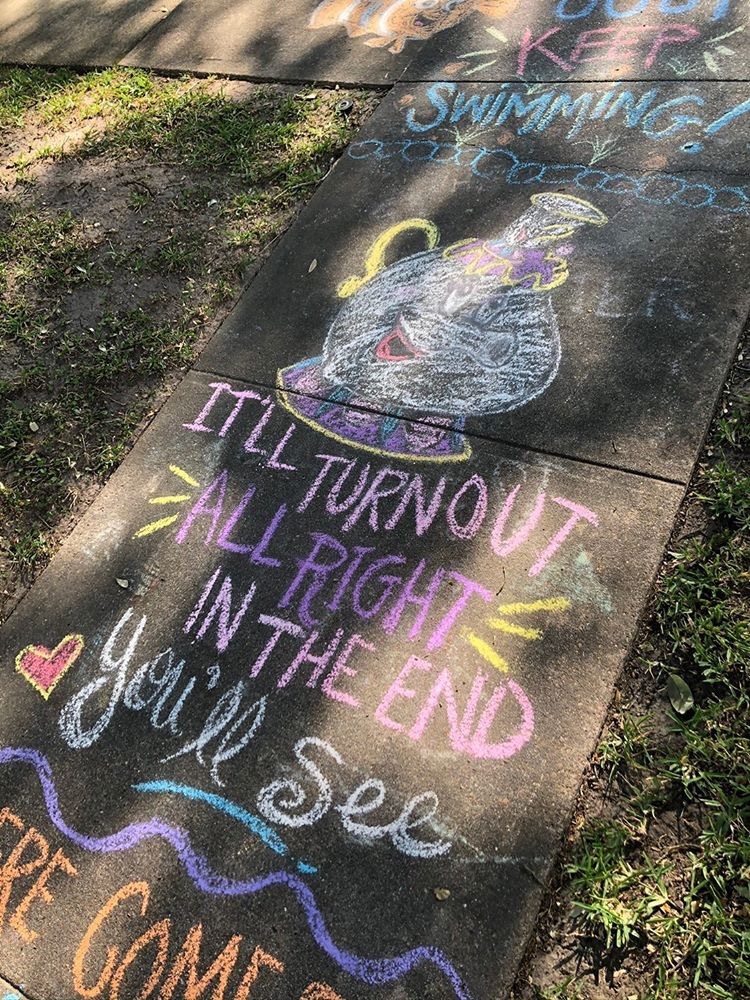 JUST
KEEP
SWIMMING!
IT'LL TURN OUT
ALL RIGHT
IN THE END
You'll See
COME